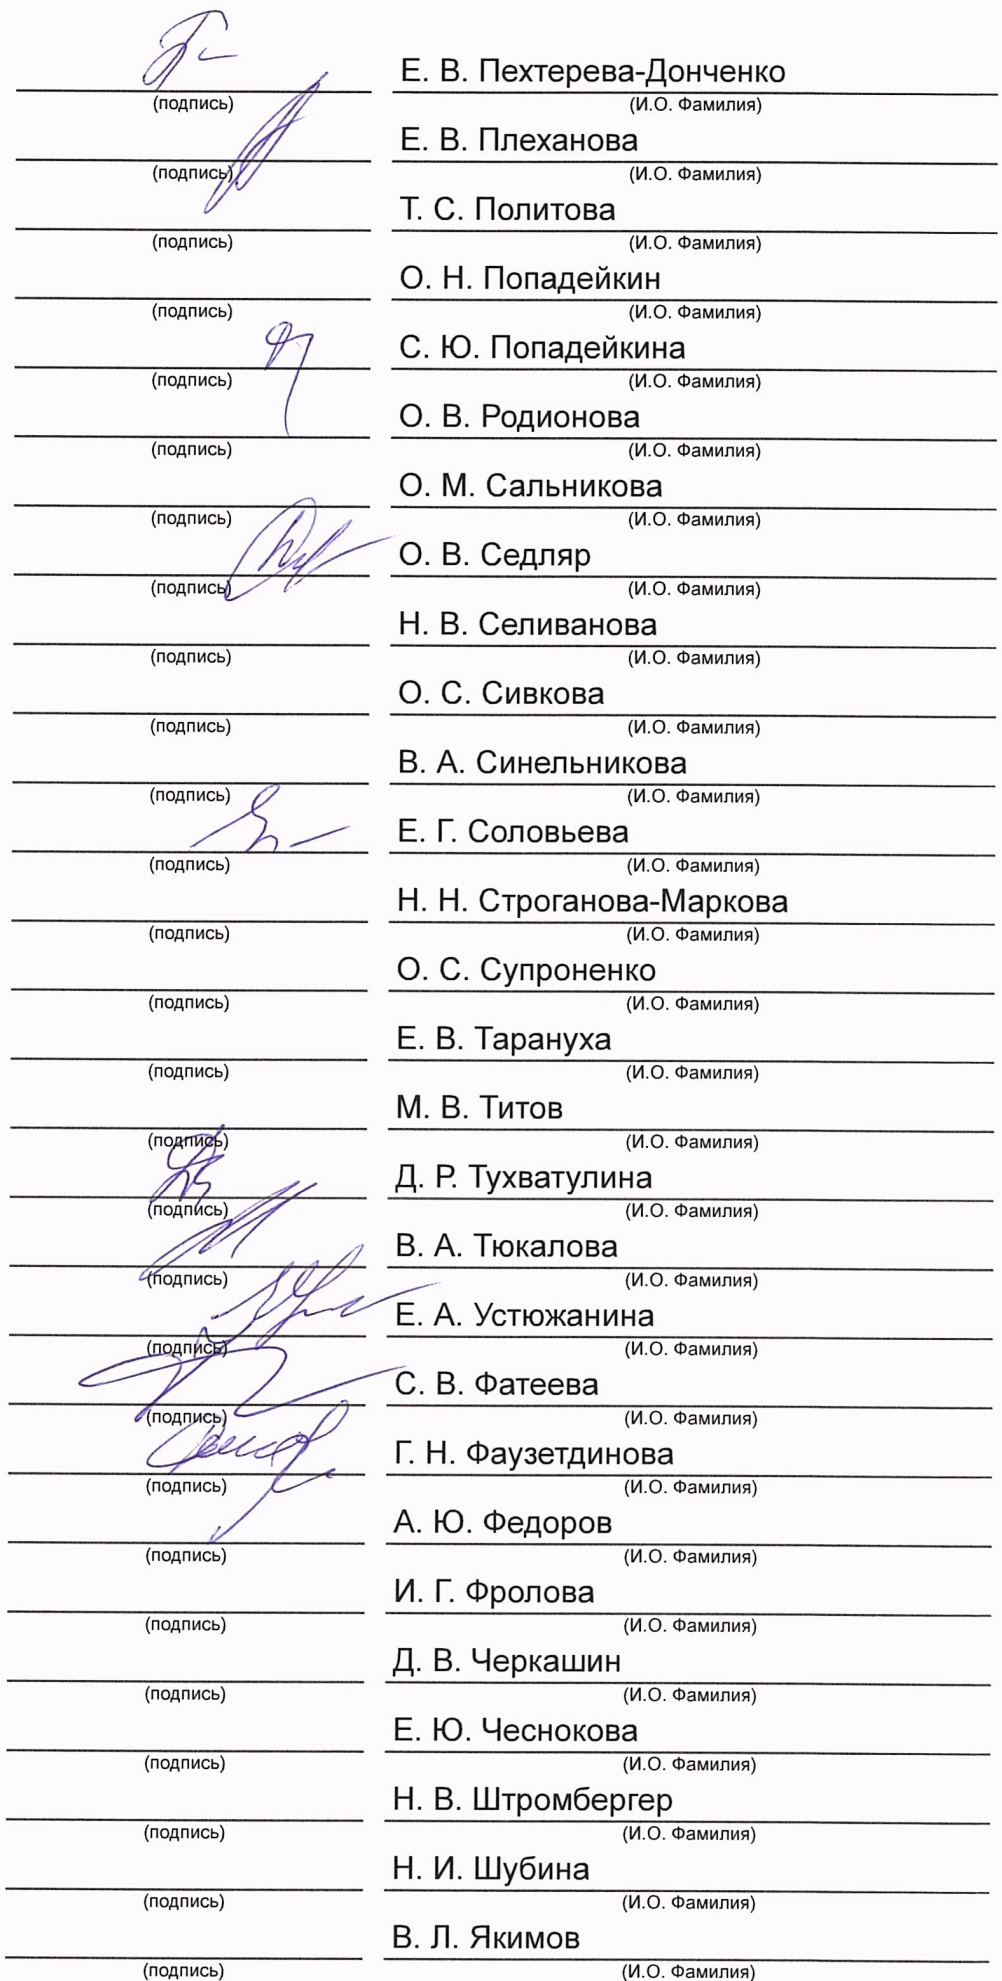 Е. В. Пехтерева-Донченко
(подпись) (И.О. Фамилия)
Е. В. Плеханова
(подпись) (И.О. Фамилия)
Т. С. Политова
(подпись) (И.О. Фамилия)
О. Н. Попадейкин
(подпись) (И.О. Фамилия)
С. Ю. Попадейкина
(подпись) (И.О. Фамилия)
О. В. Родионова
(подпись) (И.О. Фамилия)
О. М. Сальникова
(подпись) (И.О. Фамилия)
О. В. Седляр
(подпись) (И.О. Фамилия)
Н. В. Селиванова
(подпись) (И.О. Фамилия)
О. С. Сивкова
(подпись) (И.О. Фамилия)
В. А. Синельникова
(подпись) (И.О. Фамилия)
Е. Г. Соловьева
(подпись) (И.О. Фамилия)
Н. Н. Строганова-Маркова
(подпись) (И.О. Фамилия)
О. С. Супроненко
(подпись) (И.О. Фамилия)
Е. В. Тарануха
(подпись) (И.О. Фамилия)
М. В. Титов
(подпись) (И.О. Фамилия)
Д. Р. Тухватулина
(подпись) (И.О. Фамилия)
В. А. Тюкалова
(подпись) (И.О. Фамилия)
Е. А. Устюжанина
(подпись) (И.О. Фамилия)
С. В. Фатеева
(подпись) (И.О. Фамилия)
Г. Н. Фаузетдинова
(подпись) (И.О. Фамилия)
А. Ю. Федоров
(подпись) (И.О. Фамилия)
И. Г. Фролова
(подпись) (И.О. Фамилия)
Д. В. Черкашин
(подпись) (И.О. Фамилия)
Е. Ю. Чеснокова
(подпись) (И.О. Фамилия)
Н. В. Штромбергер
(подпись) (И.О. Фамилия)
Н. И. Шубина
(подпись) (И.О. Фамилия)
В. Л. Якимов
(подпись) (И.О. Фамилия)